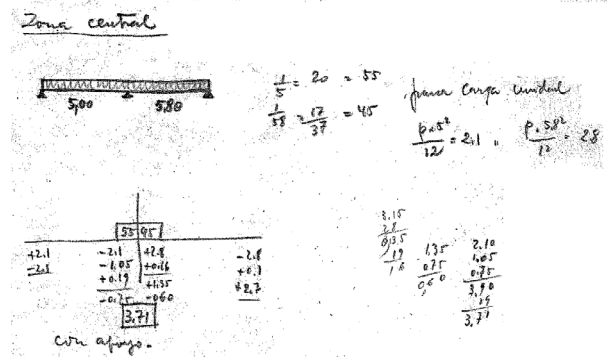 Zona central
5,00 5,80
1/5 = 20 = 55
1/58 = 17/37 = 45
para carga unidad
p.5²/12 = 2.1 , p.58²/12 = 28
55 45
+2.1 -2.1 +2.8 -2.8
-2.1 -1,05
+0.19 +1.35
-0.60
3,71
con apoyo.
3,15
28
0,35
19
16
1,35
0,75
0,60
2.10
1,05
0,75
3,90
19
3,71